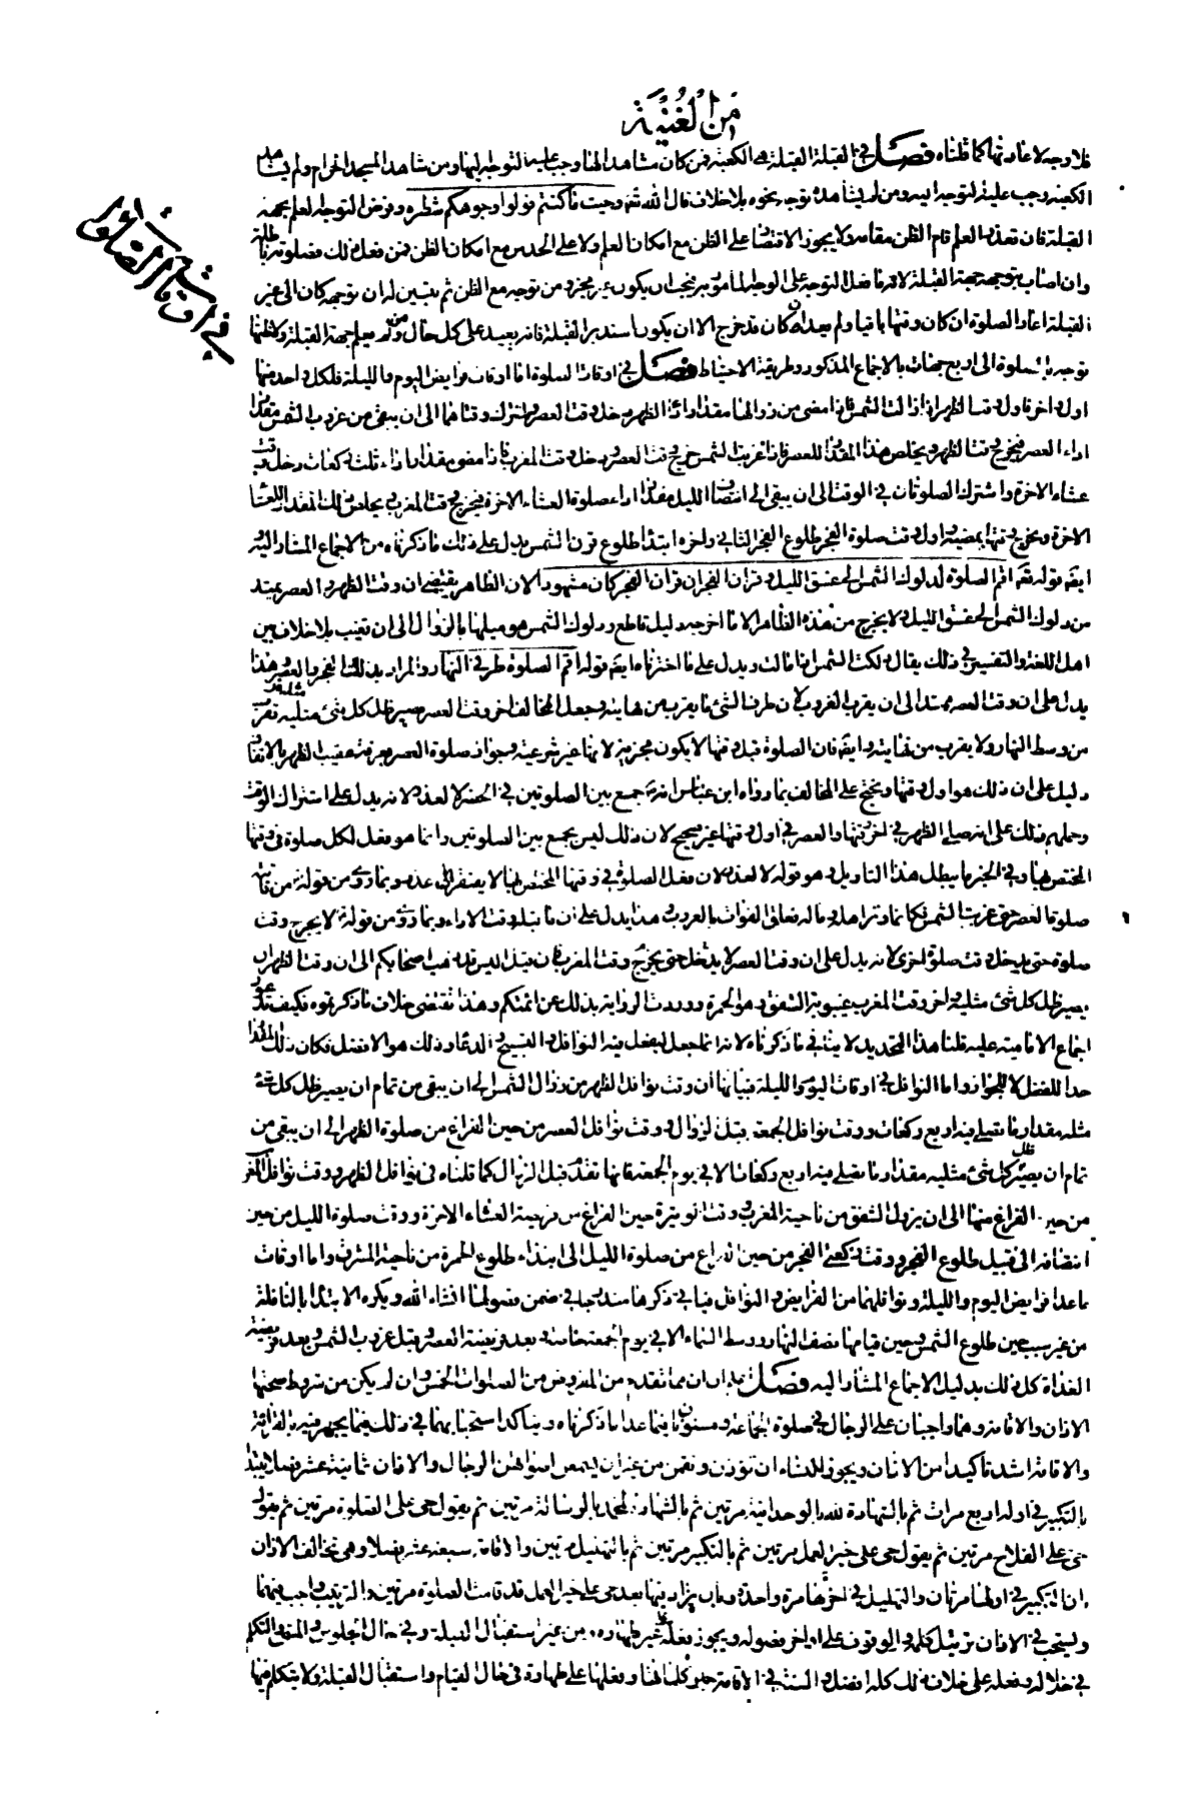 من الغنية
في اوقات الصلوة
فلا وجه لاعادتها كما قلناه فصل في القبلة القبلة هي الكعبة فمن كان مشاهدا لها وجب عليه التوجه اليها ومن شاهد المسجد الحرام ولم يشاهد
الكعبة وجب عليه التوجه اليه ومن لم يشاهده توجه نحوه بلا خلاف قال الله تعه وحيث ما كنتم فولوا وجوهكم شطره وفرض التوجه العلم بجهة
القبلة فان تعذر العلم قام الظن مقامه ولا يجوز الاقتصار على الظن مع امكان العلم ولا على الحدس مع امكان الظن فمن فعل ذلك فصلوته باطلة
وان اصاب بتوجهه جهة القبلة لانه ما فعل التوجه على الوجه المأمور به فيجب ان يكون غير مجز ومن توجه مع الظن ثم تبين له ان توجهه كان الى غير
القبلة اعاد الصلوة ان كان وقتها باقيا ولم يعد ان كان قد خرج الا ان يكون استدبر القبلة فانه يعيد على كل حال ومن لم يعلم جهة القبلة ولا ظنها
توجه بالصلوة الى اربع جهات بالاجماع المذكور وطريقة الاحتياط فصل في اوقات الصلوة اما اوقات فرايض اليوم والليلة فلكل واحد منها
اول واخر فاول وقت الظهر اذا زالت الشمس فاذا مضى من زوالها مقدار اداء الظهر دخل وقت العصر واشترك وقتاهما الى ان يبقى من غروب الشمس مقدار
اداء العصر فيخرج وقت الظهر ويخلص هذا المقدار للعصر فاذا غربت الشمس خرج وقت العصر ودخل وقت المغرب فاذا مضى مقدار اداء ثلث ركعات دخل وقت
عشاء الاخرة واشترك الصلوتان في الوقت الى ان يبقى الى انتصاف الليل مقدار اداء صلوة العشاء الاخرة فيخرج وقت المغرب ويخلص ذلك المقدار للعشاء
الاخرة ويخرج وقتها بمضيه واول وقت صلوة الفجر طلوع الفجر الثاني واخره ابتداء طلوع قرن الشمس يدل على ذلك ما ذكرناه من الاجماع المشار اليه
ايضه قوله تعه اقم الصلوة لدلوك الشمس الى غسق الليل وقران الفجر ان قران الفجر كان مشهودا لان الظاهر يقتضي ان وقت الظهر والعصر يمتد
من دلوك الشمس الى غسق الليل ولا يخرج من هذه الظاهر الا ما اخرجه دليل قاطع ودلوك الشمس هو ميلها بالزوال الى ان تغيب بلا خلاف بين
اهل اللغة والتفسير في ذلك يقال دلكت الشمس اذا مالت ويدل على ما اخترناه ايضه قوله اقم الصلوة طرفي النهار والمراد بذلك الفجر والعصر وهذا
يدل على ان وقت العصر ممتد الى ان يقرب الغروب لان طرف الشئ ما يقرب من نهايته وجعل المخالف اخر وقت العصر مصير ظل كل شئ مثليه يقرب
من وسط النهار ولا يقرب من نهايته وايضه فان الصلوة قبل وقتها لا يكون مجزية لانها غير شرعية وجواز صلوة العصر بعرفة عقيب الظهر بالاتفاق
دليل على ان ذلك هو اول وقتها ويحتج على المخالف بما رواه ابن عباس انه جمع بين الصلوتين في الحضر لا لعذر لانه يدل على اشتراك الوقت
وحملهم ذلك على انه صلى الظهر في اخر وقتها والعصر في اول وقتها غير صحيح لان ذلك ليس بجمع بين الصلوتين وانما هو فعل لكل صلوة في وقتها
المختص بها وفي الخبر ما يبطل هذا التاويل وهو قوله لا لعذر لان فعل الصلوة في وقتها المختص بها لا يفتقر الى عذر وبما روى من قوله من فاتته
صلوة العصر حتى غربت الشمس فكانما وتر اهله وماله فعلق الفوات بالغروب وهذا يدل على ان ما قبله وقت الاداء وبما روى من قوله لا يخرج وقت
صلوة حتى يدخل وقت صلوة اخرى لانه يدل على ان وقت العصر لا يدخل حتى يخرج وقت المغرب فان قيل اليس قد ذهب اصحابكم الى ان وقت الظهر ان
يصير ظل كل شئ مثليه واخر وقت المغرب غيبوبة الشفق وهو الحمرة ووردت الرواية بذلك عن ائمتكم وهذا يقتضى خلاف ما ذكرتموه فكيف تدعون
اجماع الامامية عليه قلنا هذا التحديد لا ينافي ما ذكرناه لانه انما جعل ليفعل فيه النوافل والتسبيح والدعاء وذلك هو الافضل فكان ذلك المقدار
حدا للفضل لا للجواز واما النوافل في اوقات اليوم والليلة فبيانها ان وقت نوافل الظهر من زوال الشمس الى ان يبقى من تمام ان يصير ظل كل شئ
مثله مقدار ما يصلى فيه اربع ركعات ووقت نوافل الجمعة قبل الزوال ووقت نوافل العصر من حين الفراغ من صلوة الظهر الى ان يبقى من
تمام ان يصير ظل كل شئ مثليه مقدار ما يصلى فيه اربع ركعات الا في يوم الجمعة فانها تقدم قبل الزوال كما قلناه في نوافل الظهر ووقت نوافل المغرب
من حين الفراغ منها الى ان يزول الشفق من ناحية المغرب ووقت الوتيرة حين الفراغ من فريضة العشاء الاخرة ووقت صلوة الليل من حين
انتصافه الى قبيل طلوع الفجر ووقت ركعتي الفجر من حين الفراغ من صلوة الليل الى ابتداء طلوع الحمرة من ناحية المشرق واما اوقات
ما عدا فرايض اليوم والليلة ونوافلهما من الفرايض والنوافل فياتي ذكرها في ضمن فصولها انشاء الله ويكره الابتداء بالنافلة
من غير سبب حين طلوع الشمس وحين قيامها نصف النهار وسط السماء الا في يوم الجمعة خاصة وبعد فريضة العصر وقبل غروب الشمس وبعد فريضة
الغداة كل ذلك بدليل الاجماع المشار اليه فصل الاذان مما تقدم من المفروض من الصلوات الخمس وان لم يكن من شروط صحتها
الاذان والاقامة وهما واجبان على الرجال في صلوة الجماعة ومسنونان فيما عدا ما ذكرناه ويتاكد استحبابهما في ذلك فيما يجهر فيه بالقرائة
والاقامة اشد تاكيدا من الاذان ويجوز للنساء ان تؤذن وتقمن من غير ان يسمعن اصواتهن الرجال والاذان ثمانية عشر فصلا يبتدا
بالتكبير في اوله اربع مرات ثم بالشهادة لله بالوحدانية مرتين ثم بالشهادة لمحمد بالرسالة مرتين ثم يقول حي على الصلوة مرتين ثم يقول
حي على الفلاح مرتين ثم يقول حي على خير العمل مرتين ثم بالتكبير مرتين ثم بالتهليل مرتين والاقامة سبعة عشر فصلا وهي تخالف الاذان
ان التكبير في اولها مرتان والتهليل في اخرها مرة واحدة وبان يزاد فيها بعد حي على خير العمل قد قامت الصلوة مرتين والترتيب واجب فيهما
ويستحب في الاذان ترتيل كلمه والوقوف على اواخر فصوله ويجوز فعله على غير طهارة ومن غير استقبال القبلة وفي حال الجلوس والمشي والتكلم
في خلاله وفعله على خلاف ذلك كله افضل والسنة في الاقامة حدر كلماتها وفعلها على طهارة في حال القيام واستقبال القبلة ولا يتكلم فيها